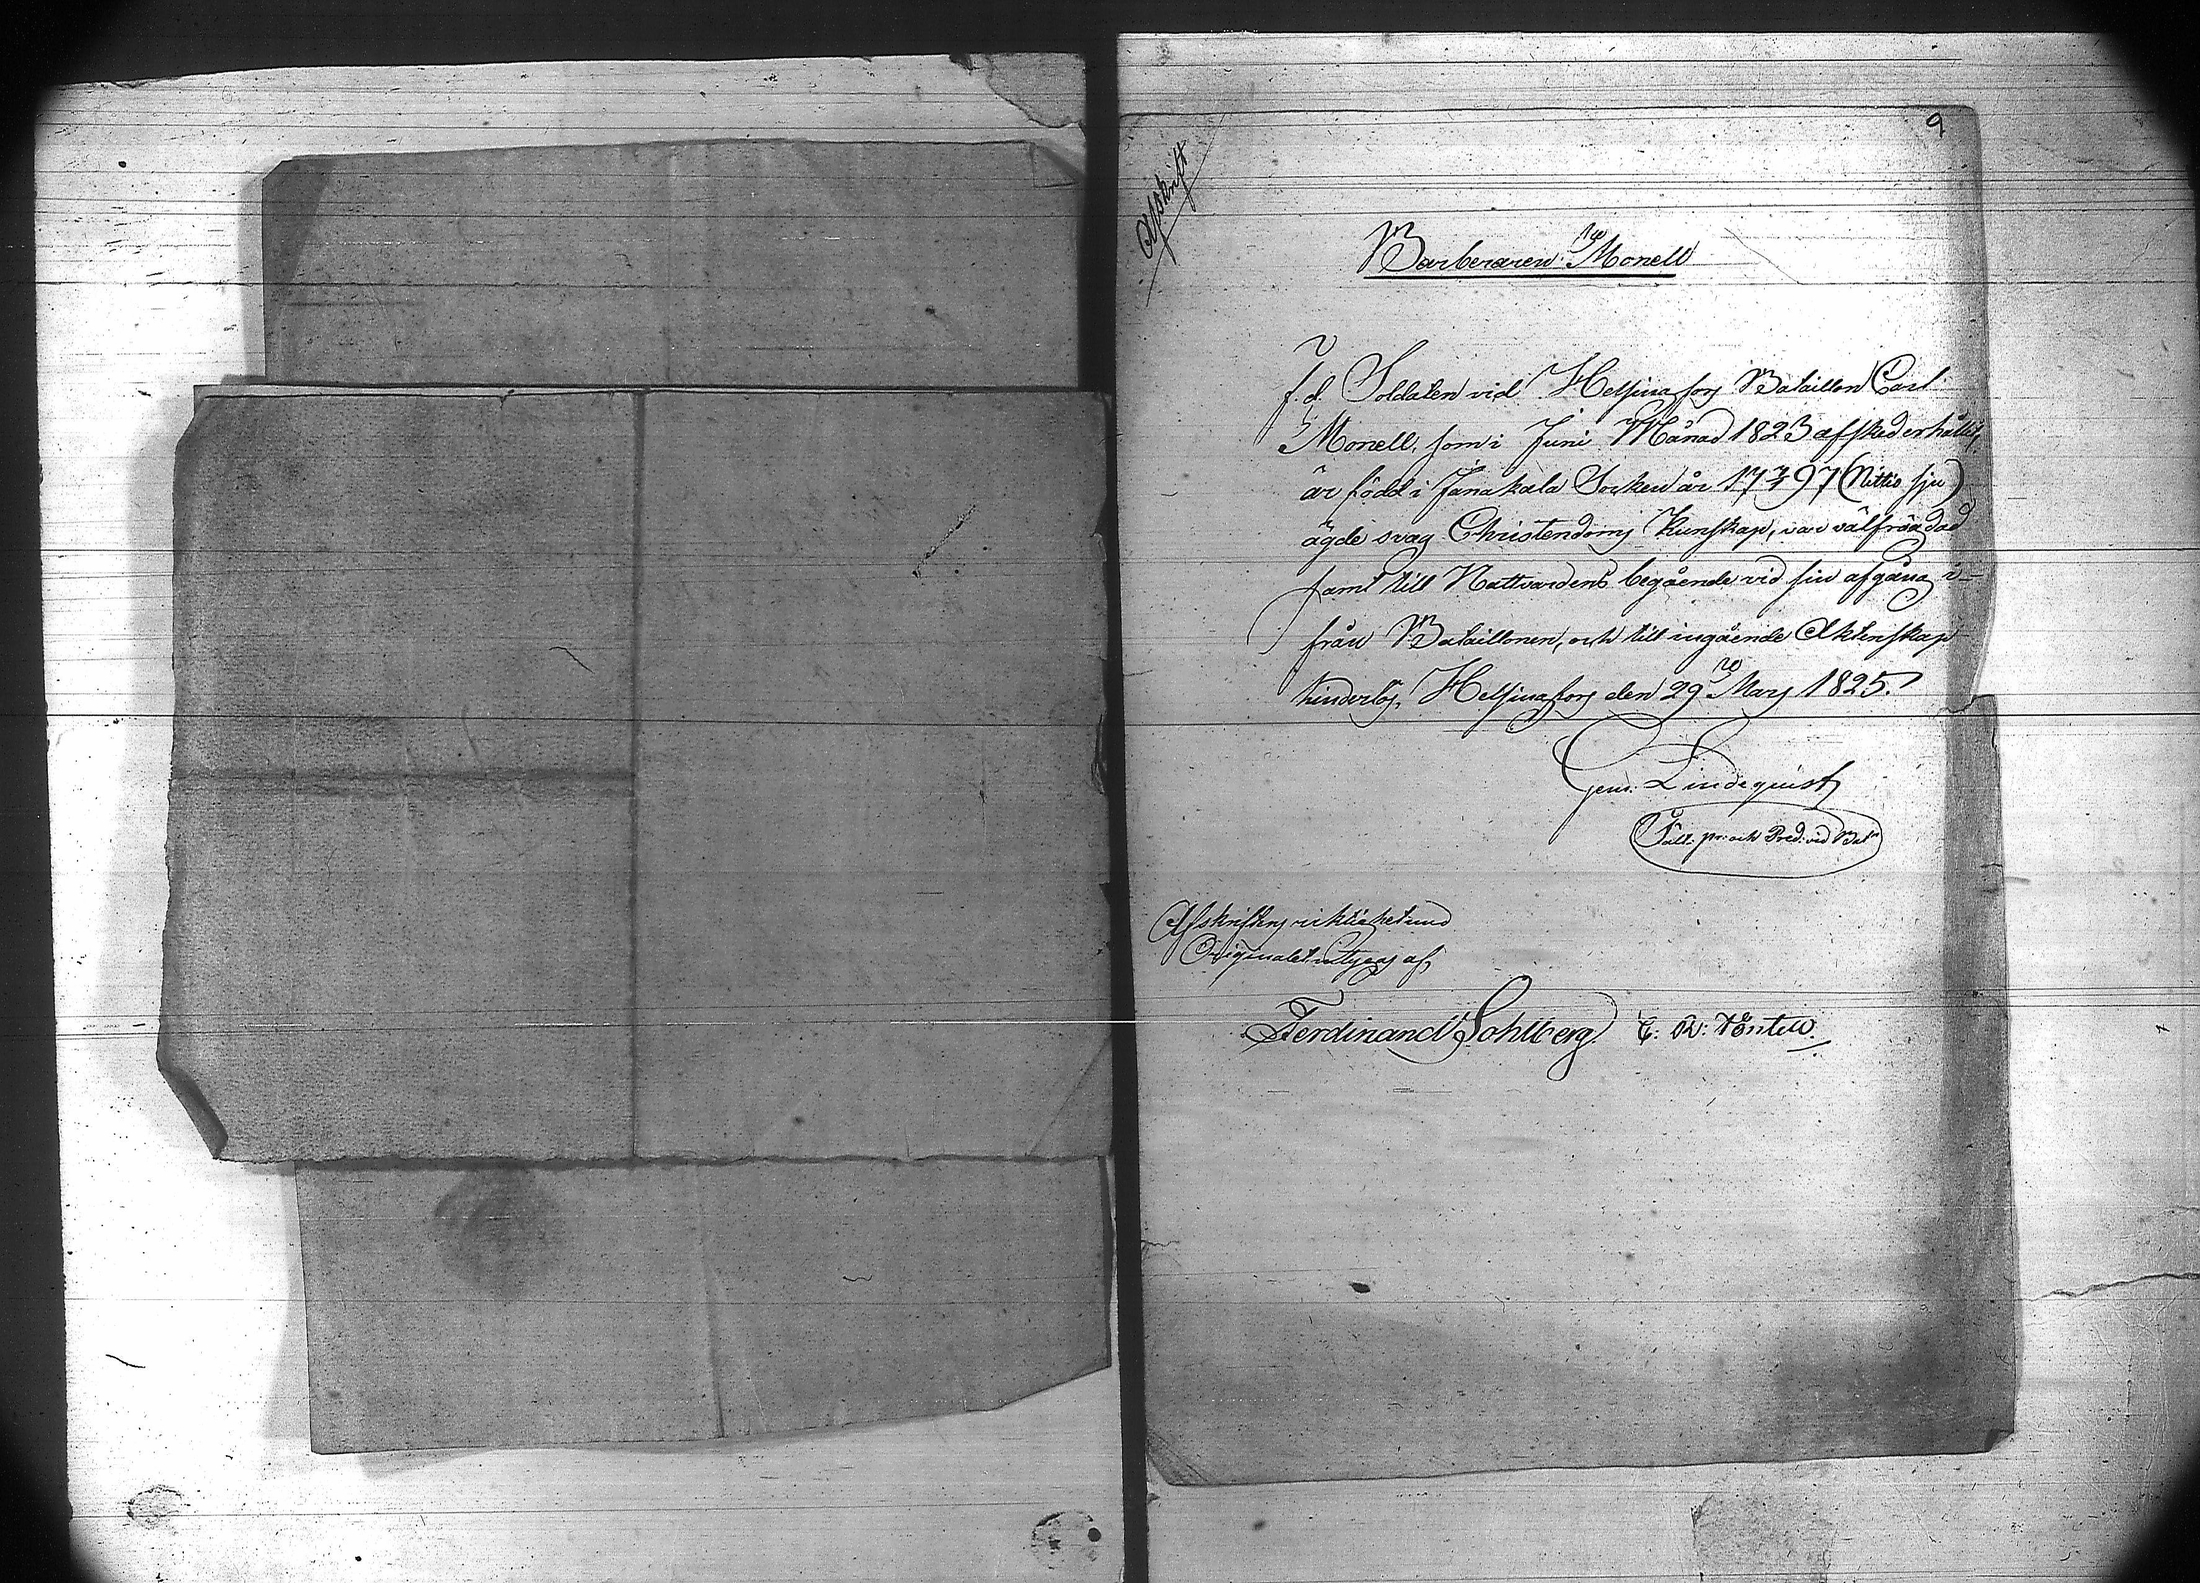 9
Afskrift
Barberaren Monell
f. d. Soldaten vid Helsingfors Bataillon Carl
Monell, som i Juni Månad 1823 afsked erhållit,
är född i Janakala Socken år 1797 (Nittio sju)
ägde svag Christendoms kunskap, var välfrägdad
samt till Nattvardens begående vid sin afgång i-
från Bataillonen, och till ingående Äktenskap
hinderlös, Helsingfors den 29 Mars 1825.
Lindequist
Fält. pr: och Pred: vid Bat
Afskriftens riktighet med
Originalet intygas af
Ferdinand Sohlberg